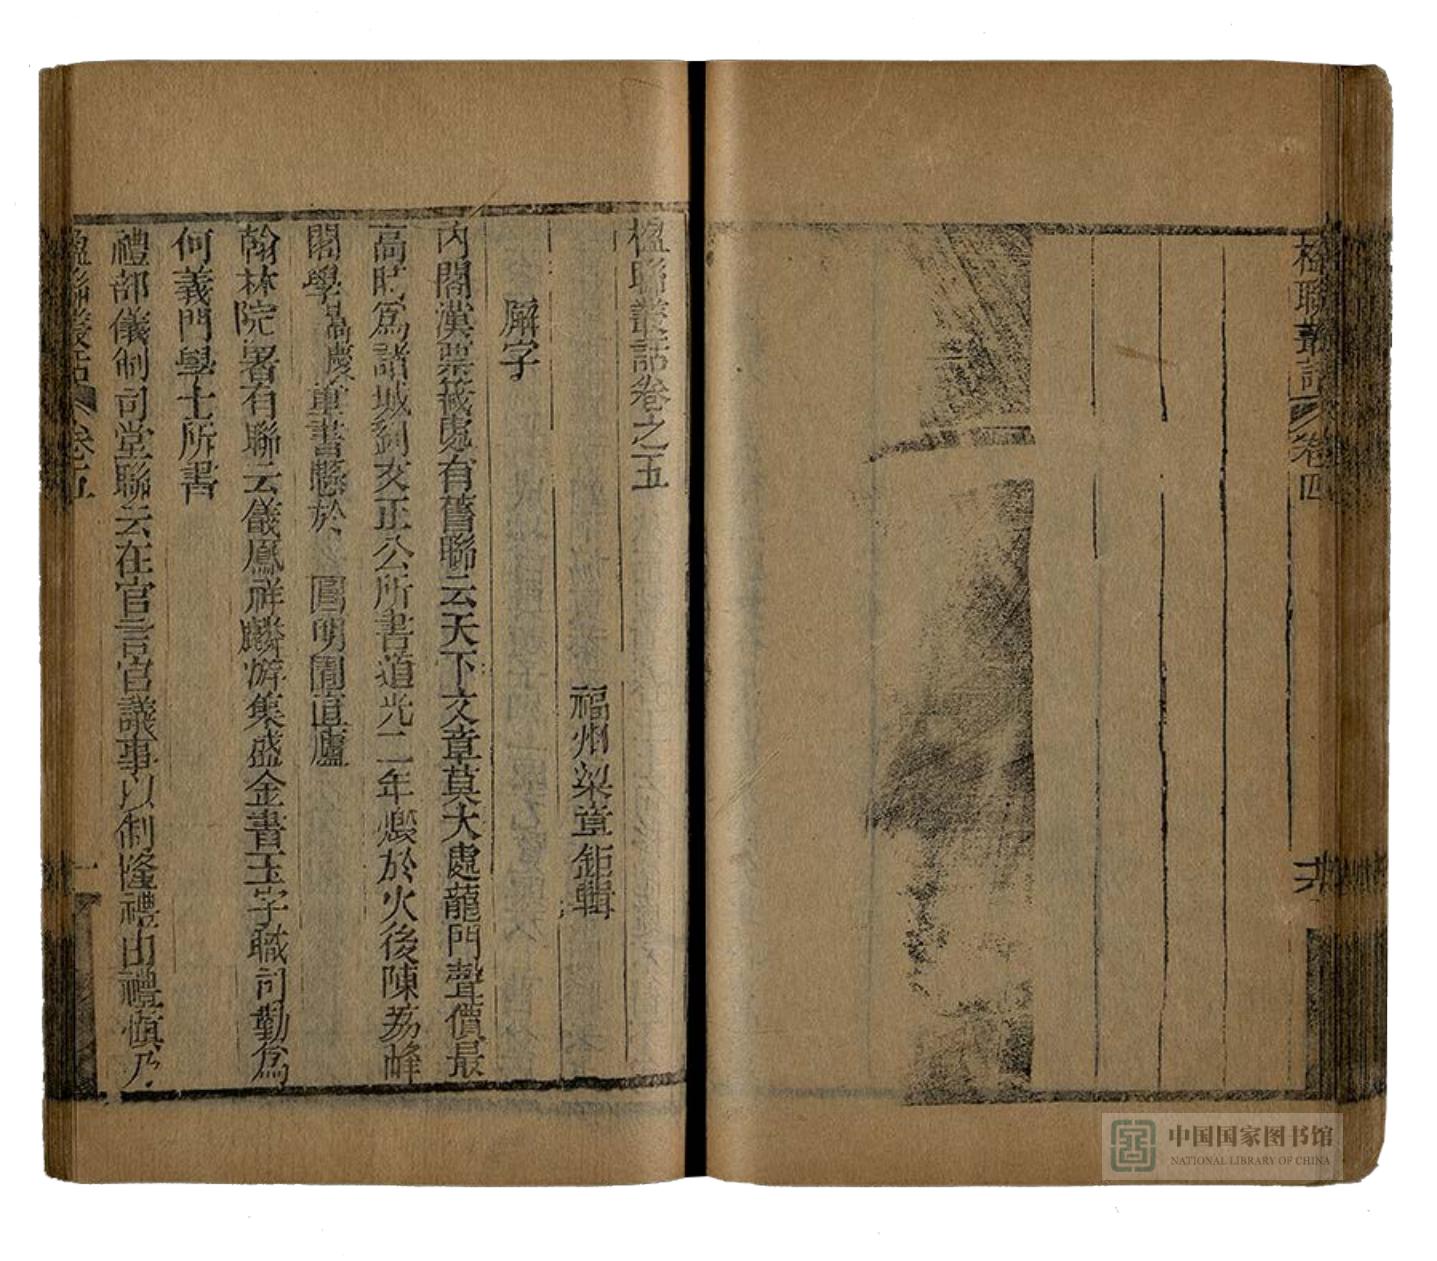 楹聯叢話 卷四
楹聯叢話卷之五
福州梁章鉅輯
廨宇
內閣漢票簽處有舊聯云天下文章莫大處龍門聲價最
高時爲諸城劉文正公所書道光二年燬於火後陳荔峰
閣學嵩慶重書懸於 圓明園直廬
翰林院署有聯云儀鳳祥麟游集盛金書玉字職司勤爲
何義門學士所書
禮部儀制司堂聯云在官言官議事以制隆禮由禮慎乃
楹聯叢話 卷五 一
中国国家图书馆
NATIONAL LIBRARY OF CHINA